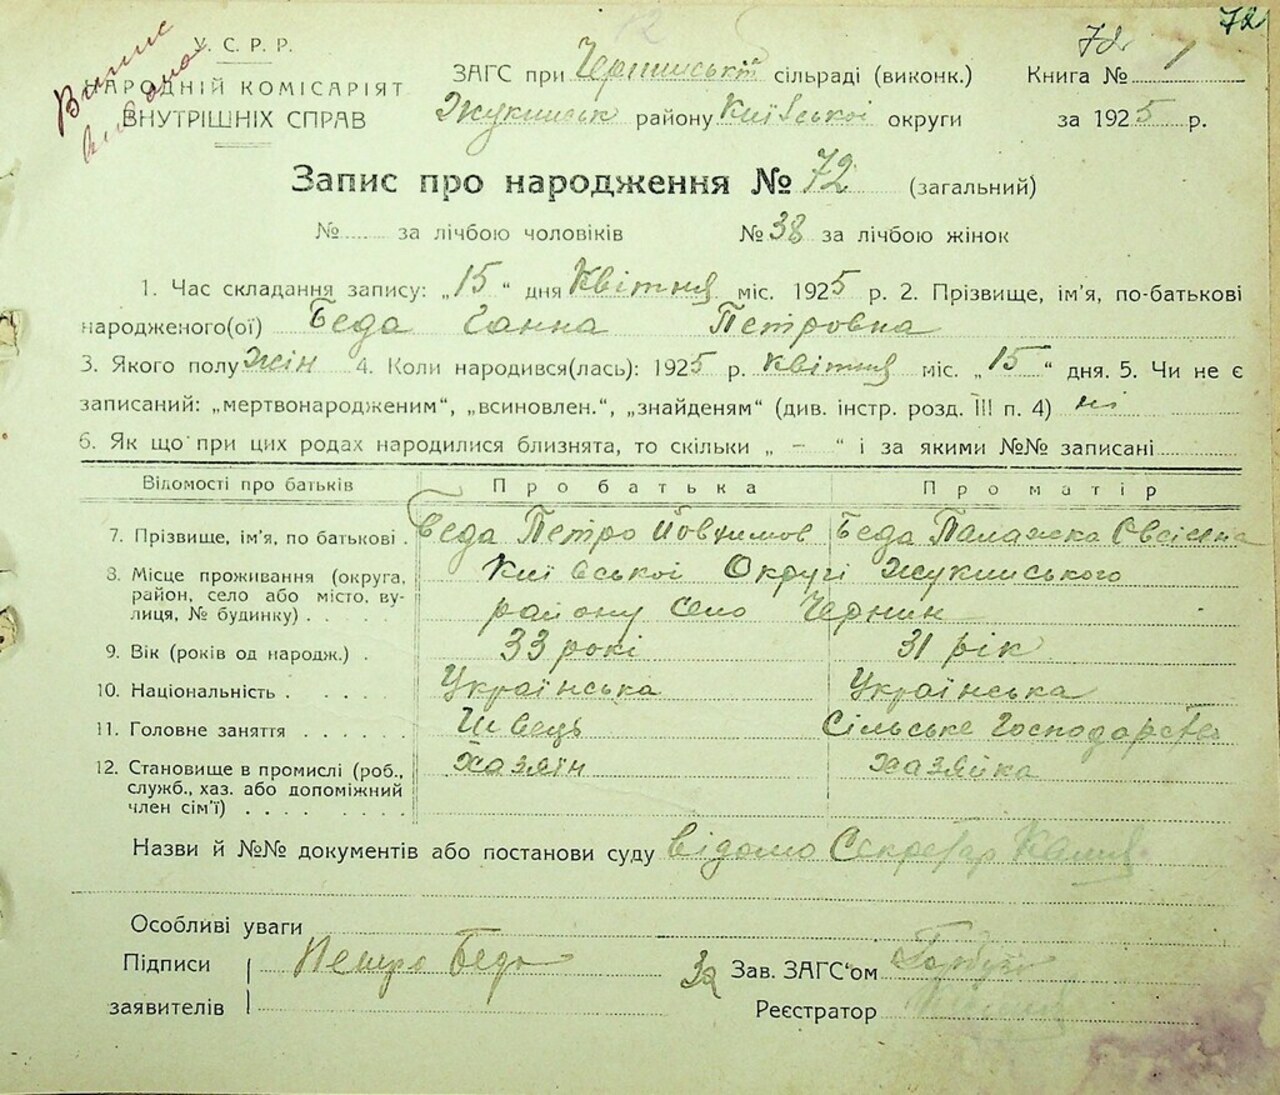 72
Випис
видно
У. С. Р. Р.
НАРОДНІЙ КОМІСАРІЯТ
ВНУТРІШНІХ СПРАВ
ЗАГС при Чернинській сільраді (виконк.)
Жукинськ району Київської округи
72
Книга № 1
за 1925 р.
Запис про народження № 72 (загальний)
№ ...... за лічбою чоловіків № 38 за лічбою жінок
1. Час складання запису: „15“ дня Квітня міс. 1925 р. 2. Прізвище, ім'я, по-батькові
народженого(ої) Беда Ганна Петровна
3. Якого полу жін 4. Коли народився(лась): 1925 р. квітня міс. „15“ дня. 5. Чи не є
записаний: „мертвонародженим“, „всиновлен.“, „знайденям“ (див. інстр. розд. III п. 4) ні
6. Як що при цих родах народилися близнята, то скільки „ – “ і за якими №№ записані
Відомості про батьків Про батька Про матір
7. Прізвище, ім'я, по батькові . Беда Петро Йовхимов Беда Палажка Овсієна
8. Місце проживання (округа, Київської Округі Жукинського
район, село або місто, ву-
лиця, № будинку) . . . . . району село Чернин
9. Вік (років од народж.) . 33 років 31 рік
10. Національність . . . . . Українська Українська
11. Головне заняття . . . . . . Швець Сільське Господарство
12. Становище в промислі (роб., Хазяїн хазяйка
служб., хаз. або допоміжний
член сім'ї) . . . . . . . .
Назви й №№ документів або постанови суду відомо Секретар
Особливі уваги
Підписи Петро Беда За Зав. ЗАГС‘ом
заявителів Реєстратор